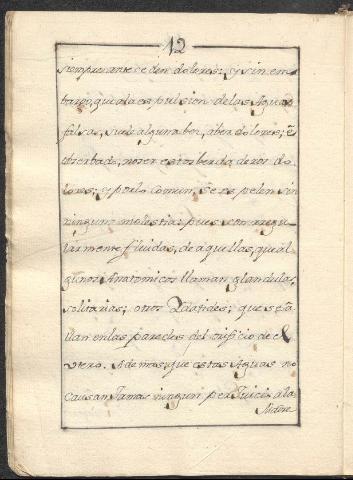 12
siempre antecedendolores; y sin em-
bargo, qe. ala espulsion delas Aguas
falsas, suele alguna bez, aber dolores; ē
observado, noser estos berdaderos do
lores; y porlo Comun, se espelen sin
ninguna molestia: pues son regu
larmente fluidas, de aquellas, qe. al
gunos Anatomicos llaman glandulas
solitarias; otros que se ā
llan enlas paredes del orificio de el
utero. Ademas, que estas Aguas no
causan Jamas ningun perJuicio ala
Madre